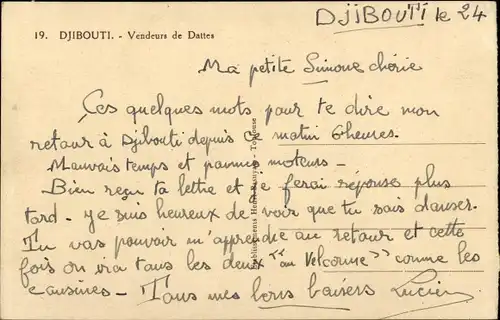 DJIBOUTI le 24
19. DJIBOUTI. - Vendeurs de Dattes
Ma petite Simone chérie
Ces quelques mots pour te dire mon
retour à Djibouti depuis ce matin 6 heures.
Mauvais temps et pannes moteurs -
Bien reçu ta lettre et je ferai réponse plus
tard - je suis heureux de voir que tu sais danser.
Tu vas pouvoir m'apprendre au retour et cette
fois on ira tous les deux "au Velcome" comme les
cousines - Tous mes bons baisers Lucien
Etablissements - Toulouse